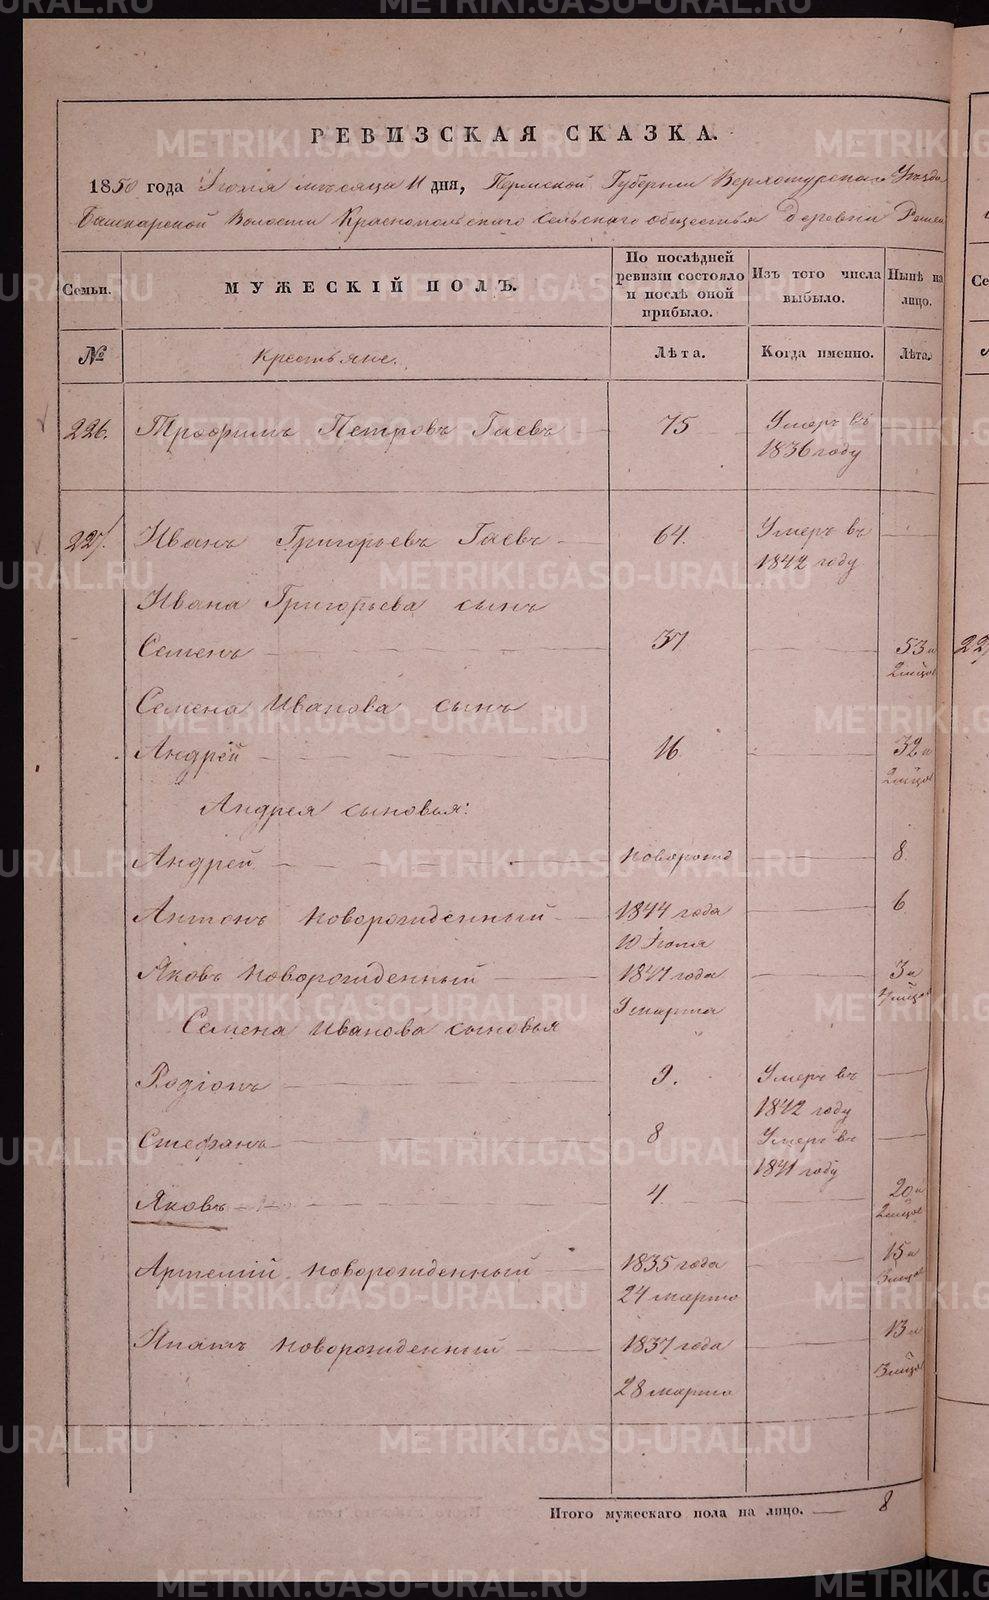 РЕВИЗСКАЯ СКАЗКА.
1850 года Іюня мѣсяца 11 дня, Пермской Губерніи Верхотурскаго Уѣзда
Башкарской Волости Краснопольскаго Сельскаго общества Деревни
Семьи. МУЖЕСКІЙ ПОЛЪ. По послѣдней ревизіи состояло и послѣ оной прибыло. Изъ того числа выбыло. Нынѣ на лицо.
№ Крестьяне. Лѣта. Когда именно. Лѣта.
226. Трофимъ Петровъ Гаевъ 75 Умеръ въ
1836 году
227. Иванъ Григорьевъ Гаевъ 64. Умеръ въ
1842 году
Ивана Григорьева сынъ
Семенъ 37 53 и
2 мѣсц
Семена Иванова сынъ
Андрей 16 32 и
2 мѣсц
Андрея сыновья:
Андрей новорожд 8.
Антонъ новорожденный 1844 года 6
10 Іюня
Яковъ новорожденный 1847 года 3 и
марта мѣсц
Семена Иванова сыновья
Родіонъ 9. Умеръ въ
1842 году
Стефанъ 8 Умеръ въ
1841 году
Яковъ 4. 20 и
2 мѣсц
Артемій новорожденный 1835 года 15 и
24 марта 3 мѣсц
Ипатъ новорожденный 1837 года 13 и
28 марта 3 мѣсц
Итого мужескаго пола на лицо. 8
METRIKI.GASO-URAL.RU